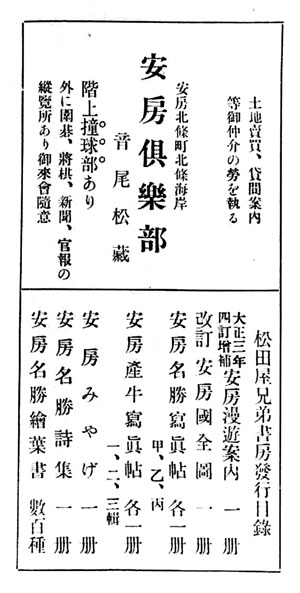 土地賣買、貸間案内
等御仲介の勞を執る
安房北條町北條海岸
安房倶樂部
音尾松藏
階上撞球部あり
外に圍碁、將棋、新聞、官報の
縱覽所あり御來會隨意
松田屋兄弟書房發行目錄
大正三年四訂增補 安房漫遊案内 一册
改訂 安房國全圖 一册
安房名勝寫眞帖 甲、乙、丙 各一册
安房產牛寫眞帖 一、二、三輯 各一册
安房みやげ 一册
安房名勝詩集 一册
安房名勝繪葉書 數百種